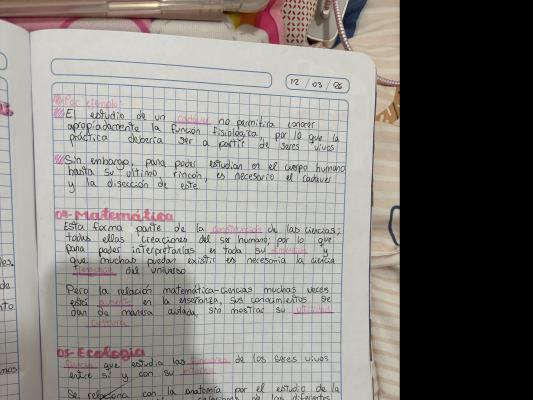 12 / 03 / 26
Por ejemplo:
El estudio de un cadaver no permitiria conocer
apropiadamente la función fisiologica, por lo que la
práctica deberia ser a partir de seres vivos
Sin embargo, para poder estudiar en el cuerpo humano
hasta su ultimo rincón, es necesario el cadaver
y la disección de este.
04- Matemática
Esta forma parte de la construcción de las ciencias;
todas ellas creaciones del ser humano, por lo que
para poder interpretarlas en toda su y
que muchas puedan existir es necesaria la ciencia
del universo
Pero la relación matemática-ciencias muchas veces
está ausente en la enseñanza, sus conocimientos se
dan de manera aislada, sin mostrar su
cultura
05- Ecologia
ciencia que estudia las de los seres vivos
entre sí y con su
Se relaciona con la anatomía por el estudio de la
de las diferentes